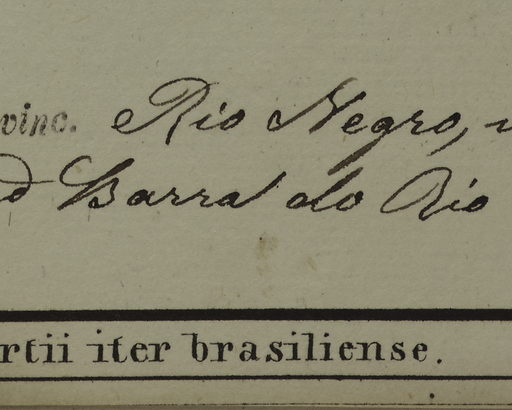 vinc. Rio Negro,
d Barra do Rio
rtii iter brasiliense.